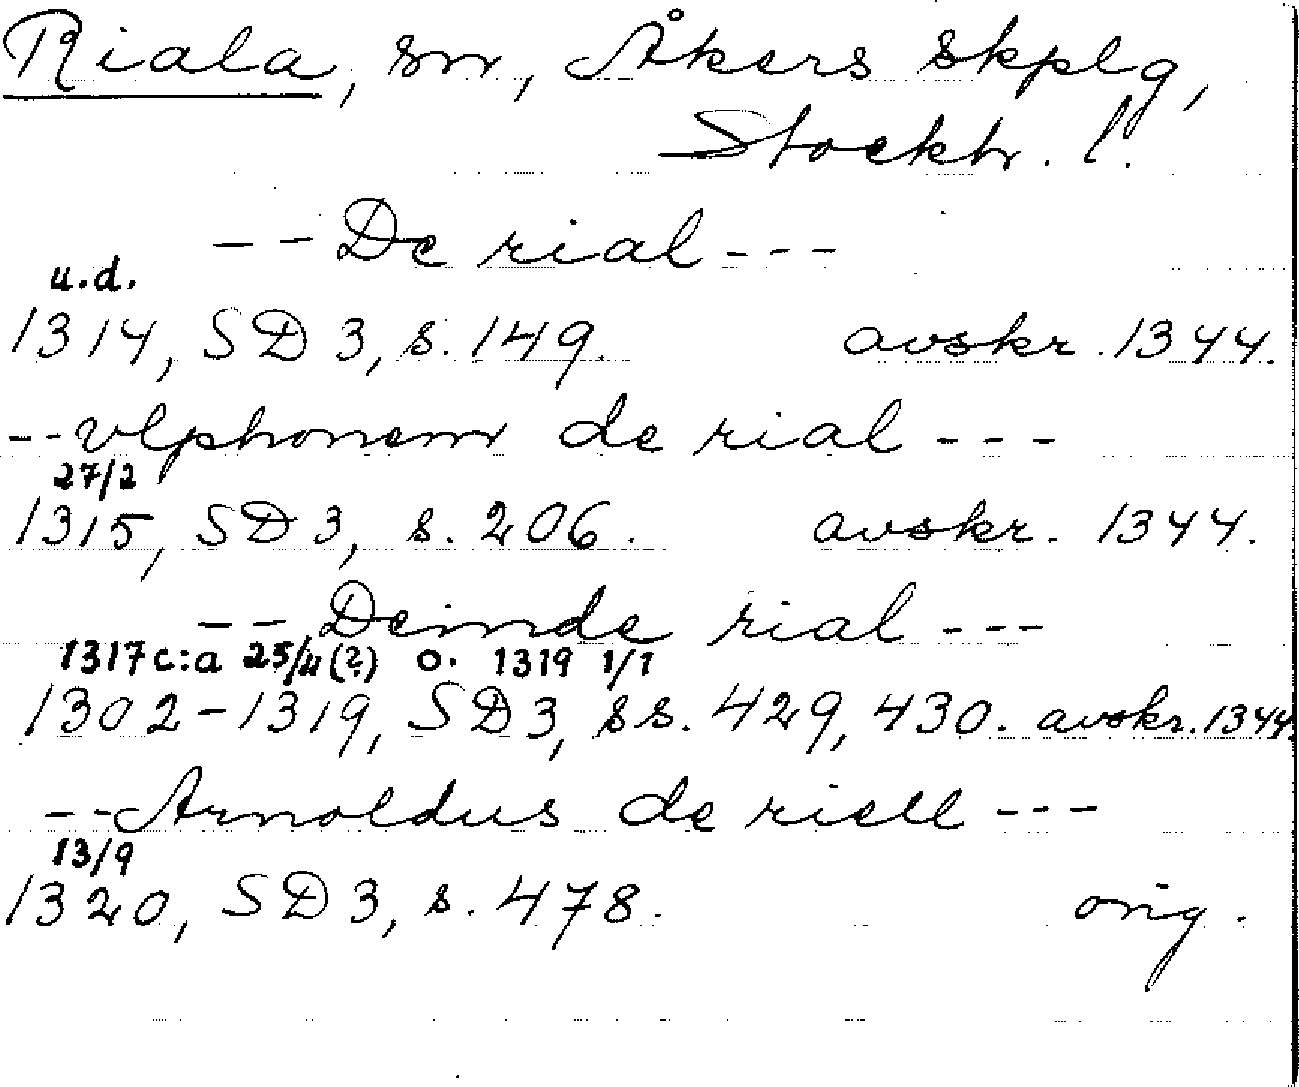 Riala, sn, Åkers skplg,
Stockh. l.
-- De rial ---
u.d.
1314, SD 3, s. 149. avskr. 1344.
-- vlphonem de rial ---
27/2
1315, SD 3, s. 206. avskr. 1344.
-- Deinde rial ---
1317 c:a 25/4 (?) o. 1319 1/1
1302-1319, SD 3, ss. 429, 430. avskr. 1344.
-- Arnoldus de riell ---
13/9
1320, SD 3, s. 478. orig.